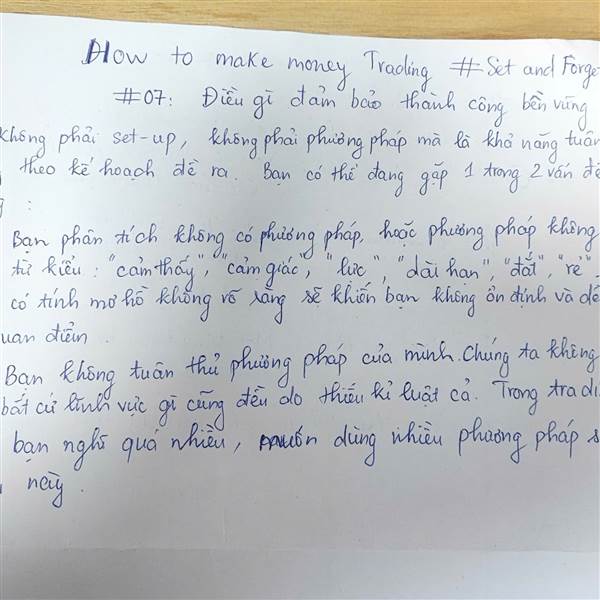 How to make money Trading # Set and Forge
#07: Điều gì đảm bảo thành công bền vững
không phải set-up, không phải phương pháp mà là khả năng tuân
theo kế hoạch đề ra. Bạn có thể đang gặp 1 trong 2 vấn đề
:
Bạn phân tích không có phương pháp, hoặc phương pháp không
từ kiểu: "cảm thấy", "cảm giác", "lực", "dài hạn", "đắt", "rẻ".
có tính mơ hồ không rõ ràng sẽ khiến bạn không ổn định và dễ
uan điểm.
Bạn không tuân thủ phương pháp của mình. Chúng ta không
bất cứ lĩnh vực gì cũng đều do thiếu kỉ luật cả. Trong tradi
bạn nghĩ quá nhiều, muốn dùng nhiều phương pháp s
này.